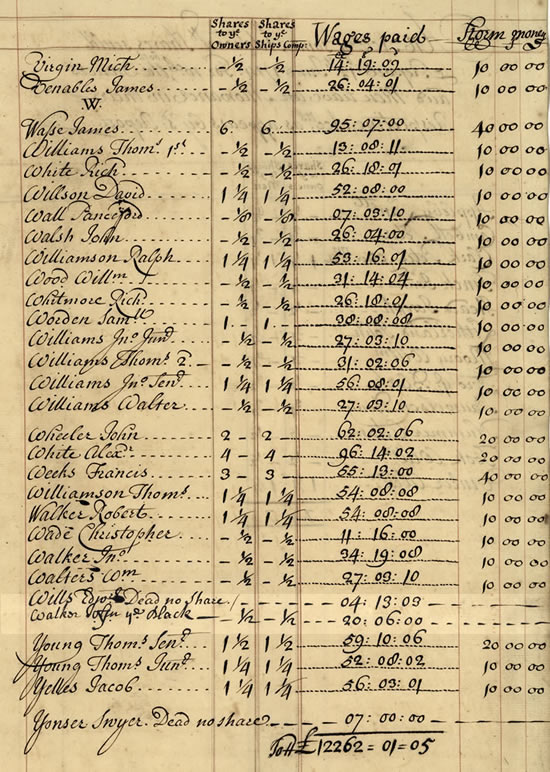 Shares to yᵉ Owners Shares to yᵉ Ships Comp: Wages paid Storm money
Virgin Mich - ½ - ½ 14: 19: 09 10 00 00
Venables James - ½ - ½ 26: 04: 01 10 00 00
W.
Wasse James 6 6 95: 07: 00 40 00 00
Williams Thomˢ 1ˢᵗ - ½ - ½ 13: 08: 11 10 00 00
White Rich - ½ - ½ 26: 18: 01 10 00 00
Willson David 1 ¼ 1 ¼ 52: 08: 00 10 00 00
Wall - ⅛ - ⅛ 07: 03: 10 10 00 00
Walsh John - ½ - ½ 26: 04: 00 10 00 00
Williamson Ralph 1 ¼ 1 ¼ 53: 16: 01 10 00 00
Wood Willᵐ - ½ - ½ 31: 14: 04 10 00 00
Whitmore Rich - ½ - ½ 26: 18: 01 10 00 00
Worden Samˡˡ 1 - 1 - 38: 08: 08 10 00 00
Williams Jnᵒ Junʳ - ½ - ½ 27: 03: 10 10 00 00
Williams Thomˢ 2 - ½ - ½ 31: 02: 06 10 00 00
Williams Jnᵒ Senʳ 1 ¼ 1 ¼ 56: 08: 01 10 00 00
Williams Walter - ½ - ½ 27: 03: 10 10 00 00
Wheeler John 2 - 2 - 62: 02: 06 20 00 00
White Alexʳ 4 - 4 - 96: 14: 02 20 00 00
Weeks Francis 3 - 3 - 55: 13: 00 40 00 00
Williamson Thomˢ 1 ¼ 1 ¼ 54: 08: 08 10 00 00
Walker Robert 1 ¼ 1 ¼ 54: 08: 08 10 00 00
Wade Christopher - ½ - ½ 11: 16: 00 10 00 00
Walker Jnᵒ - ½ - ½ 34: 19: 08 10 00 00
Walters Wᵐ - ½ - ½ 27: 03: 10 10 00 00
Wills Dead no share 04: 13: 03
Walker John yᵉ Black - ½ - ½ 20: 06: 00
Young Thomˢ Senʳ 1 ½ 1 ½ 59: 10: 06 20 00 00
Young Thomˢ Junʳ 1 ¼ 1 ¼ 52: 08: 02 10 00 00
Yelles Jacob 1 ¼ 1 ¼ 56: 03: 01 10 00 00
Yonser Swyer. Dead no share 07: 00: 00
Totˡˡ £12262 = 01 = 05